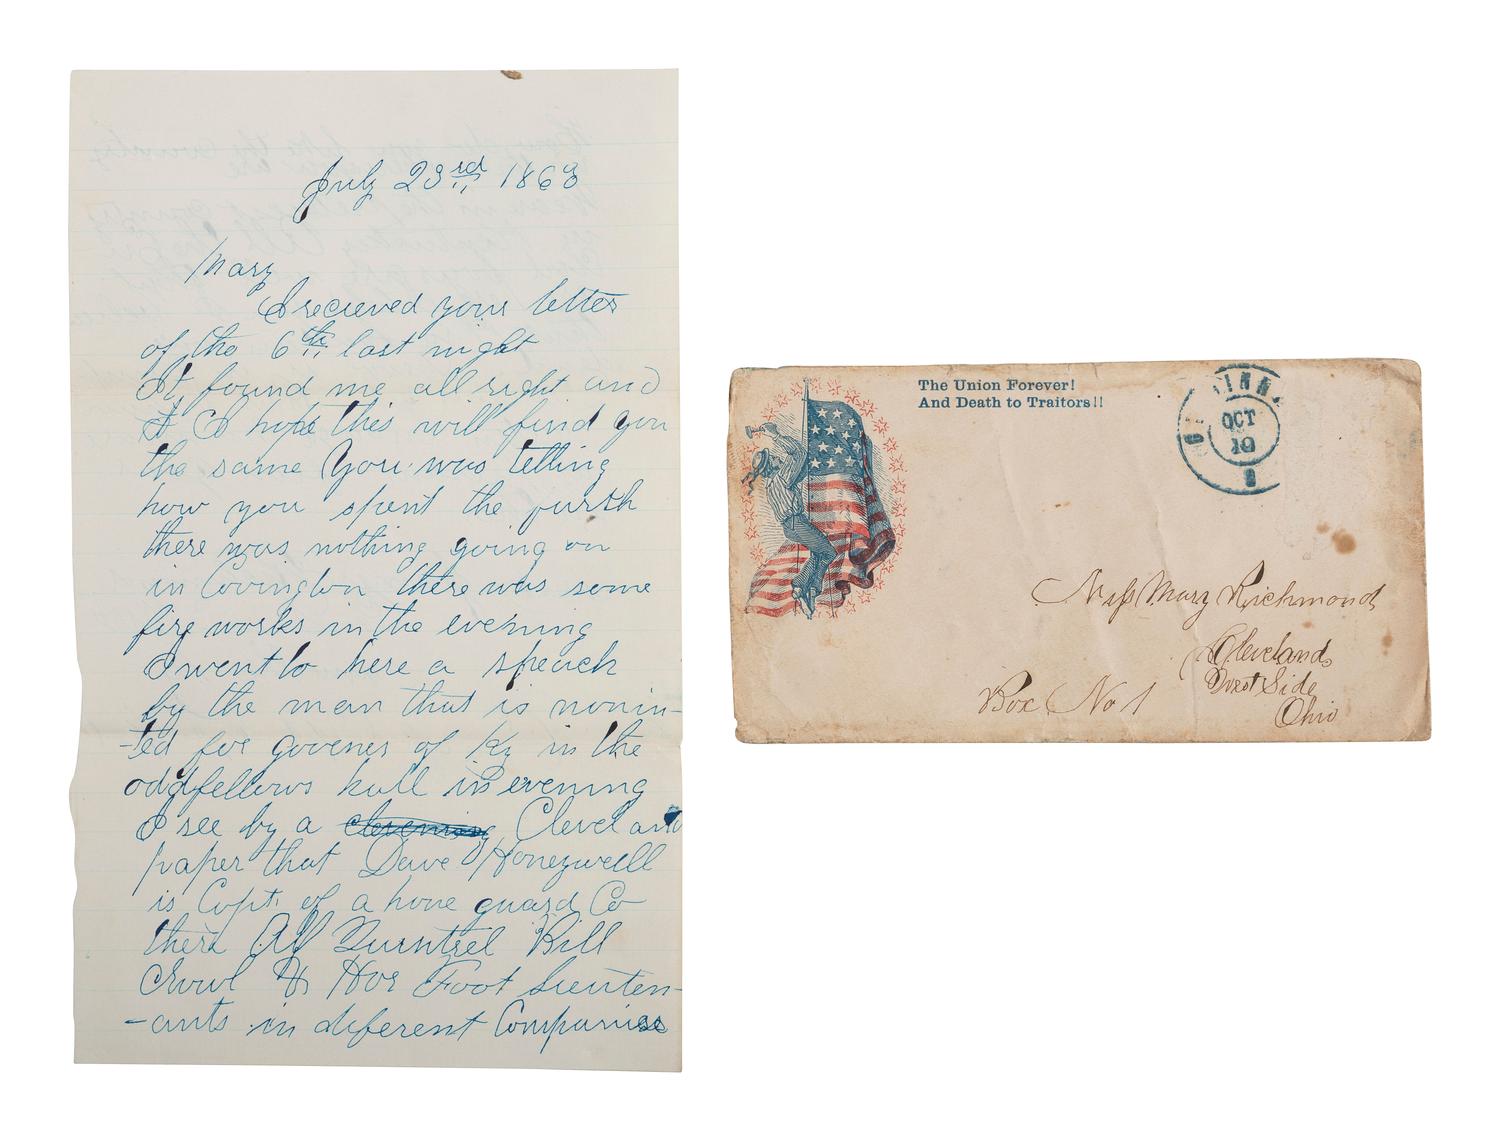 July 23rd 1863
Mary
I recieved your letter
of the 6th last night
It found me all right and
I hope this will find you
the same You was telling
how you spent the fursth
there was nothing going on
in Covington there was some
fire works in the evening
I went to here a speach
by the man that is nomin-
-ted for govener of Ky in the
oddfellows hall in evening
I see by a Cleveland
paper that Dave Honeywell
is Capt. of a home guard Co
there Alf Burntzel Bill
& Hor Foot Lieuten-
-ants in diferent Companies
The Union Forever!
And Death to Traitors!!
OCT
10
Miss Mary Richmond
Cleveland
West Side
Box No 1
Ohio